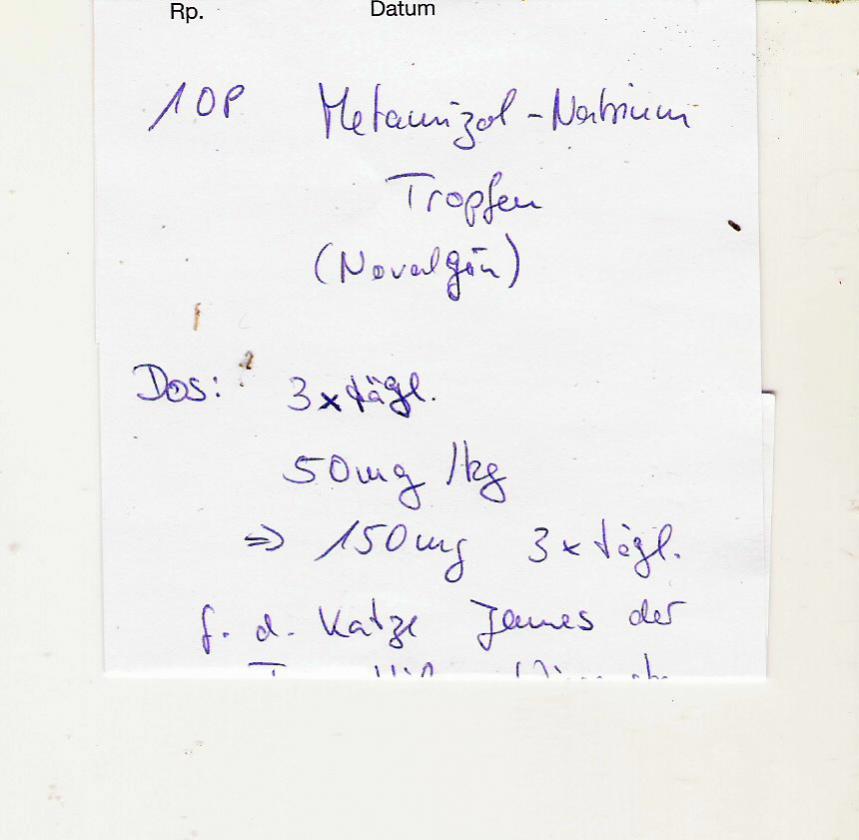 Rp. Datum
1 OP Metamizol-Natrium
Tropfen
(Novalgin)
Dos: 3x tägl.
50mg /kg
⇒ 150mg 3x tägl.
f. d. Katze James der